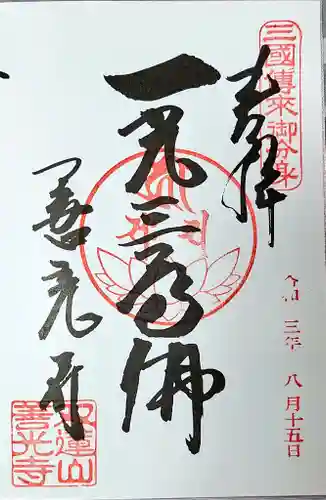 三國傳來御分身
奉拝
令和三年八月十五日
一光三尊佛
善光寺
紅蓮山
善光寺